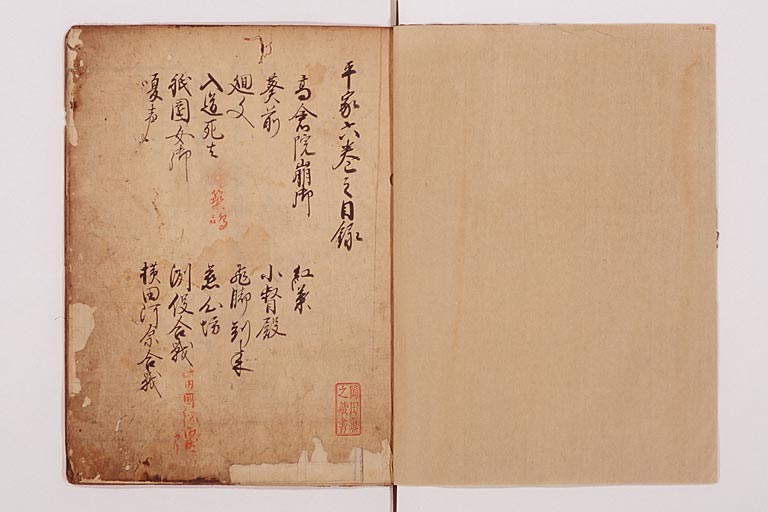 平家六巻之目録
高倉院崩御
紅葉
葵前
小督殿
廻文
飛脚到来
入道死去
築嶋
慈心坊
祇園女御
洲俣合戦
嗄声
横田河原合戦
岡田眞
之蔵書